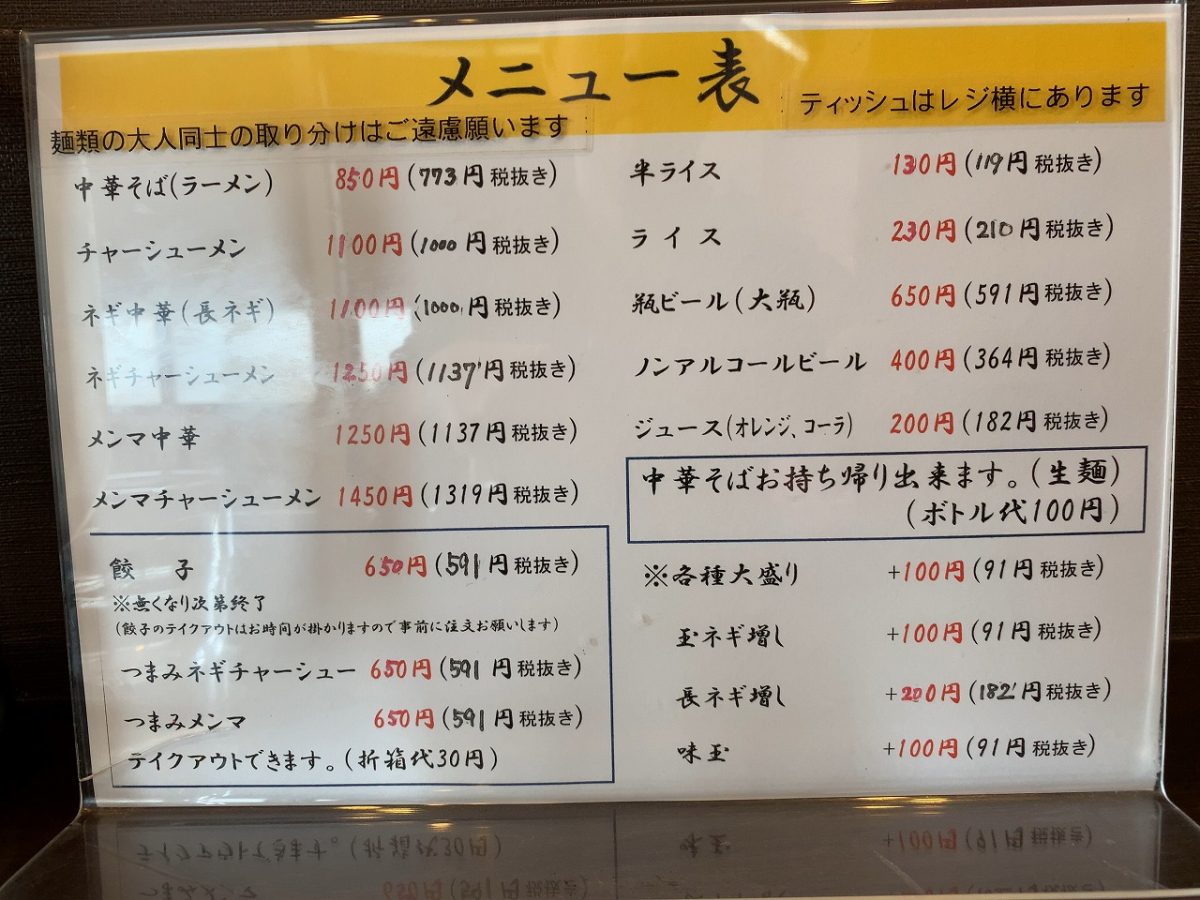 メニュー表
ティッシュはレジ横にあります
麺類の大人同士の取り分けはご遠慮願います
中華そば(ラーメン) 850円(773円税抜き)
チャーシューメン 1100円(1000円税抜き)
ネギ中華(長ネギ) 1100円(1000円税抜き)
ネギチャーシューメン 1250円(1137円税抜き)
メンマ中華 1250円(1137円税抜き)
メンマチャーシューメン 1450円(1319円税抜き)
餃子 650円(591円税抜き)
※無くなり次第終了
(餃子のテイクアウトはお時間が掛かりますので事前に注文お願いします)
つまみネギチャーシュー 650円(591円税抜き)
つまみメンマ 650円(591円税抜き)
テイクアウトできます。(折箱代30円)
半ライス 130円(119円税抜き)
ライス 230円(210円税抜き)
瓶ビール(大瓶) 650円(591円税抜き)
ノンアルコールビール 400円(364円税抜き)
ジュース(オレンジ、コーラ) 200円(182円税抜き)
中華そばお持ち帰り出来ます。(生麺)
(ボトル代100円)
※各種大盛り +100円(91円税抜き)
玉ネギ増し +100円(91円税抜き)
長ネギ増し +200円(182円税抜き)
味玉 +100円(91円税抜き)